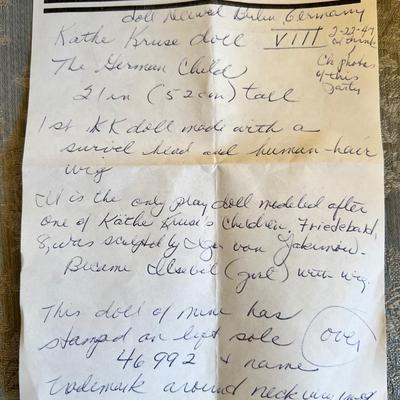 doll Berlin Germany
Kathe Kruse doll VIII 2-22-47
The German Child Ck photos of this
21 in (52 cm) tall
1st KK doll made with a
swivel head and human-hair
wig
It is the only play doll modeled after
one of Käthe Kruse's children, Friedebald,
&, was sculpted by Igor von Jakimow.
Became Ilsebil (girl) with wig.
This doll of mine has
stamped on left sole (over)
46992 & name
Trademark around neck